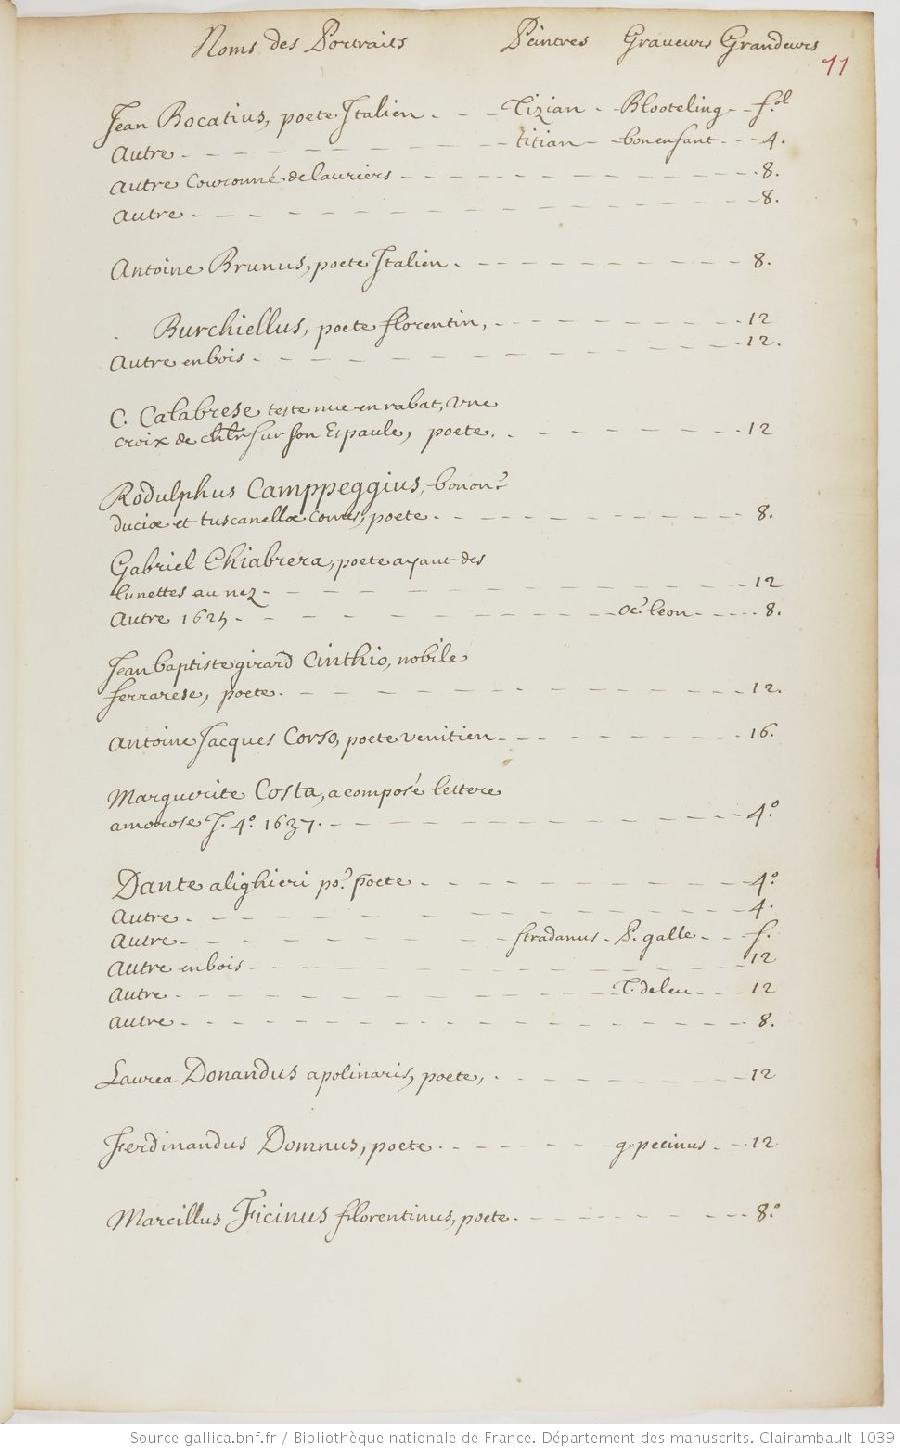 Noms des Portraits Peintres Graveurs Grandeurs
11
Jean Bocatius, poete Italien. - - Tizian - Blooteling - - f.ol
Autre - - - - - - - - - - titian - bonenfant - - - 4.
Autre Couronné de lauriers - - - - - - - - - - - 8.
Autre - - - - - - - - - - - - - - - 8.
Antoine Brunus, poete Italien. - - - - - - - - 8.
Burchiellus, poete florentin, - - - - - - - 12
Autre en bois - - - - - - - - - - - - 12.
C. Calabrese teste nue en rabat, une
croix de chlr sur son Espaule, poete. - - - - - - - 12
Rodulphus Camppeggius, bonon.
duciæ et tuscanellæ Comes, poete - - - - - - - - 8.
Gabriel Chiabrera, poete ayant des
lunettes au nez - - - - - - - - - - - - 12
Autre 1625 - - - - - - - - - - oc. leon - - - - 8.
Jean baptiste girard Cinthio, nobile
ferrarese, poete. - - - - - - - - - - - 12.
Antoine Jacques Corso, poete venitien - - - - - - - 16.
Marguerite Costa, a composé lettere
amorose J. 4º. 1637. - - - - - - - - - - - 4º
Dante alighieri po. poete - - - - - - - - - 4º
Autre - - - - - - - - - - - - - - 4.
Autre - - - - - - - - stradanus - P. galle - - f.
Autre en bois - - - - - - - - - - - - 12
Autre - - - - - - - - - - - T. deleu - - 12
Autre - - - - - - - - - - - - - - - 8.
Laurea Donandus apolinaris, poete, - - - - - - - 12
Ferdinandus Domnus, poete - - - - - g pecinus - - 12
Marcillus Ficinus florentinus, poete. - - - - - - - 8º
Source gallica.bnf.fr / Bibliothèque nationale de France. Département des manuscrits. Clairambault 1039